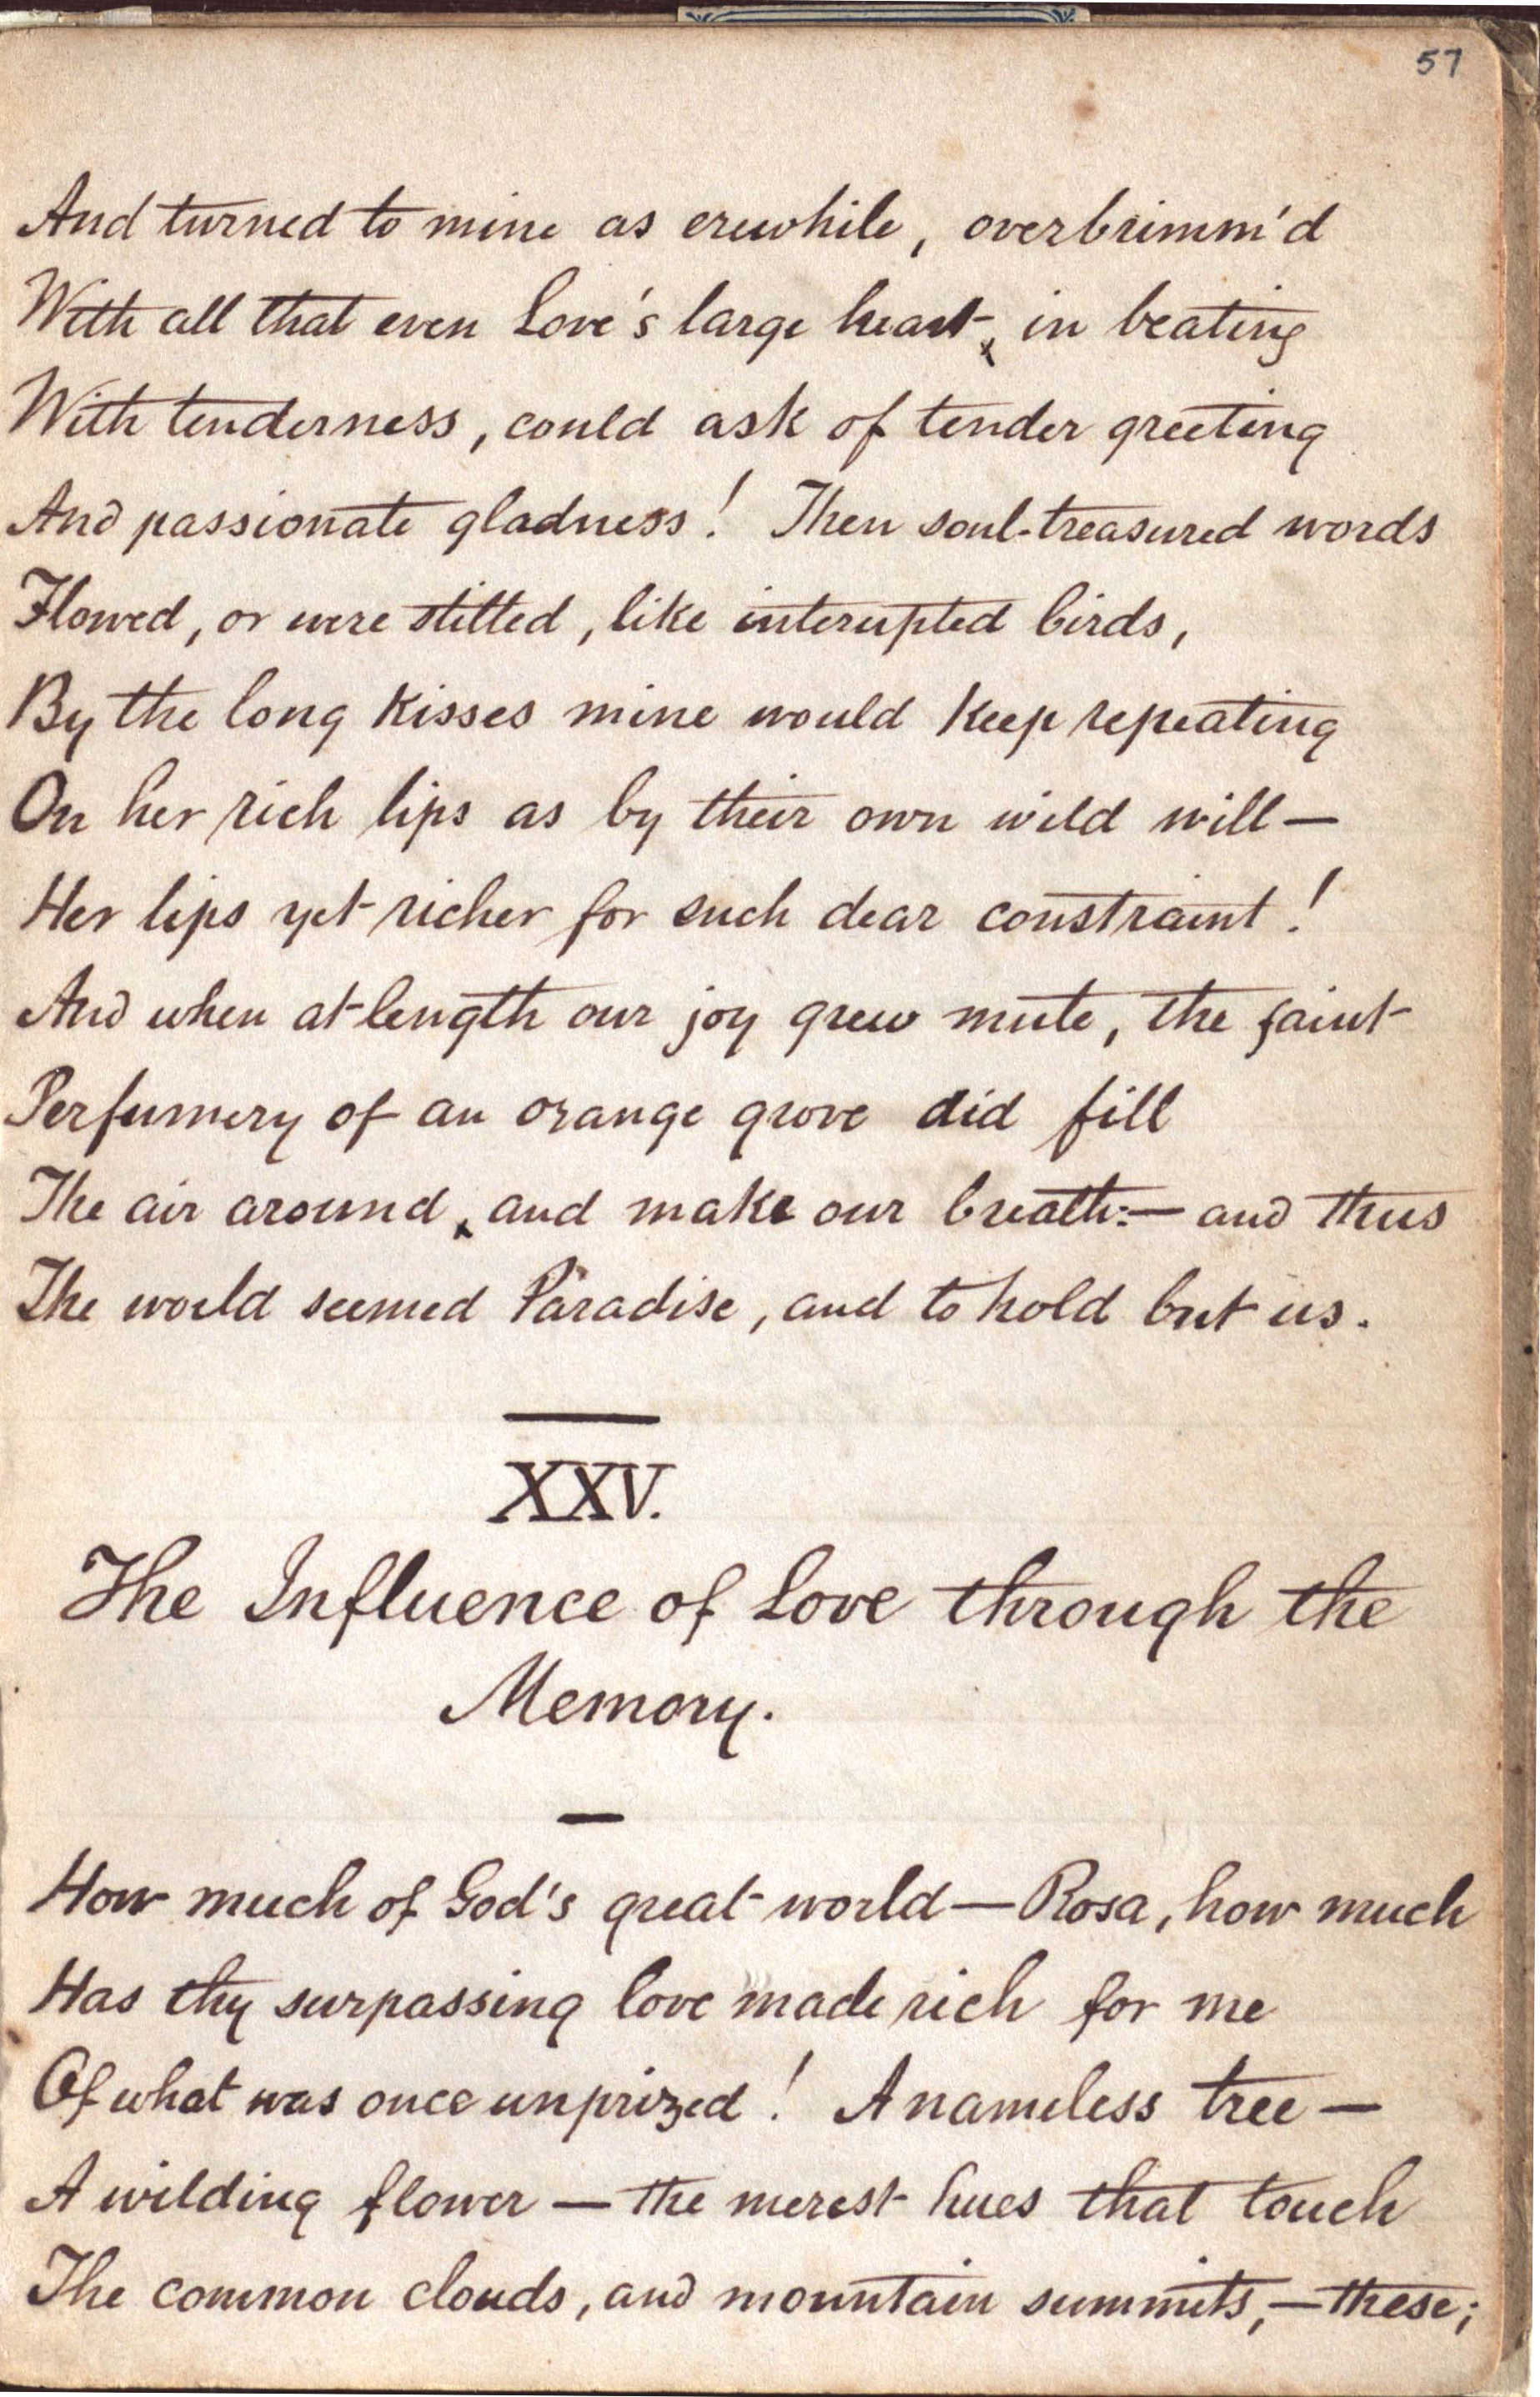 57
And turned to mine as erewhile, overbrimm'd
With all that even Love's large heart, in beating
With tenderness, could ask of tender greeting
And passionate gladness! Then soul-treasured words
Flowed, or were stilled, like interupted birds,
By the long kisses mine would keep repeating
On her rich lips as by their own wild will—
Her lips yet richer for such dear constraint!
And when at length our joy grew mute, the faint
Perfumery of an orange grove did fill
The air around, and make our breath:— and thus
The world seemed Paradise, and to hold but us.
XXV.
The Influence of Love through the
Memory.
How much of God's great world—Rosa, how much
Has thy surpassing love made rich for me
Of what was once unprized! A nameless tree—
A wilding flower — the merest hues that touch
The common clouds, and mountain summits,—these;